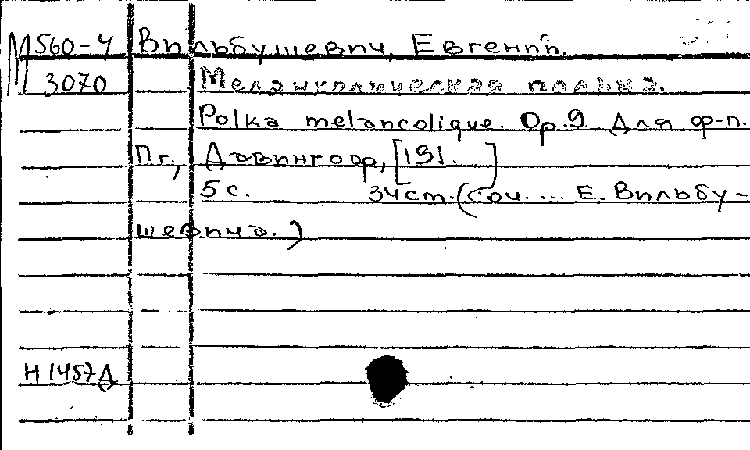 М 560-4 Вильбушевич, Евгений.
3070 Меланхолическая полька.
Polka melancolique. Op.9 Для ф-п.
Пг., Давингоф, [191. ]
5 с. 34 cm. (Соч. ... Е. Вильбу-
шевича.)
Н 1457 Д